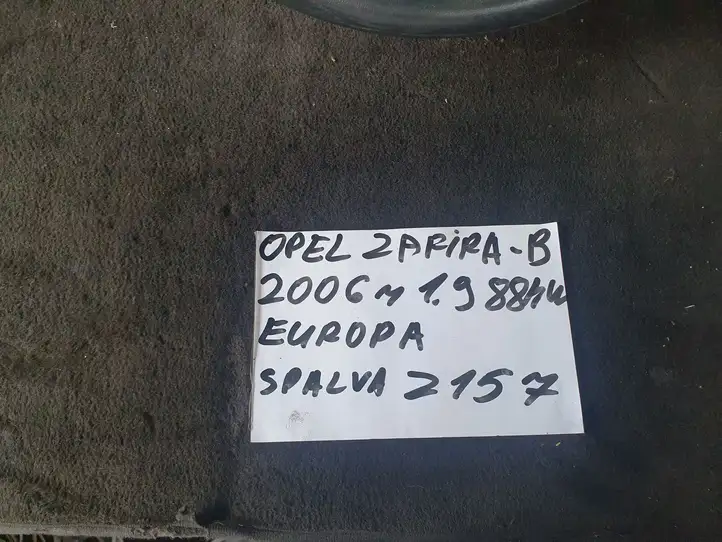 OPEL ZAFIRA-B
2006 m 1.9 88kW
EUROPA
SPALVA 2157